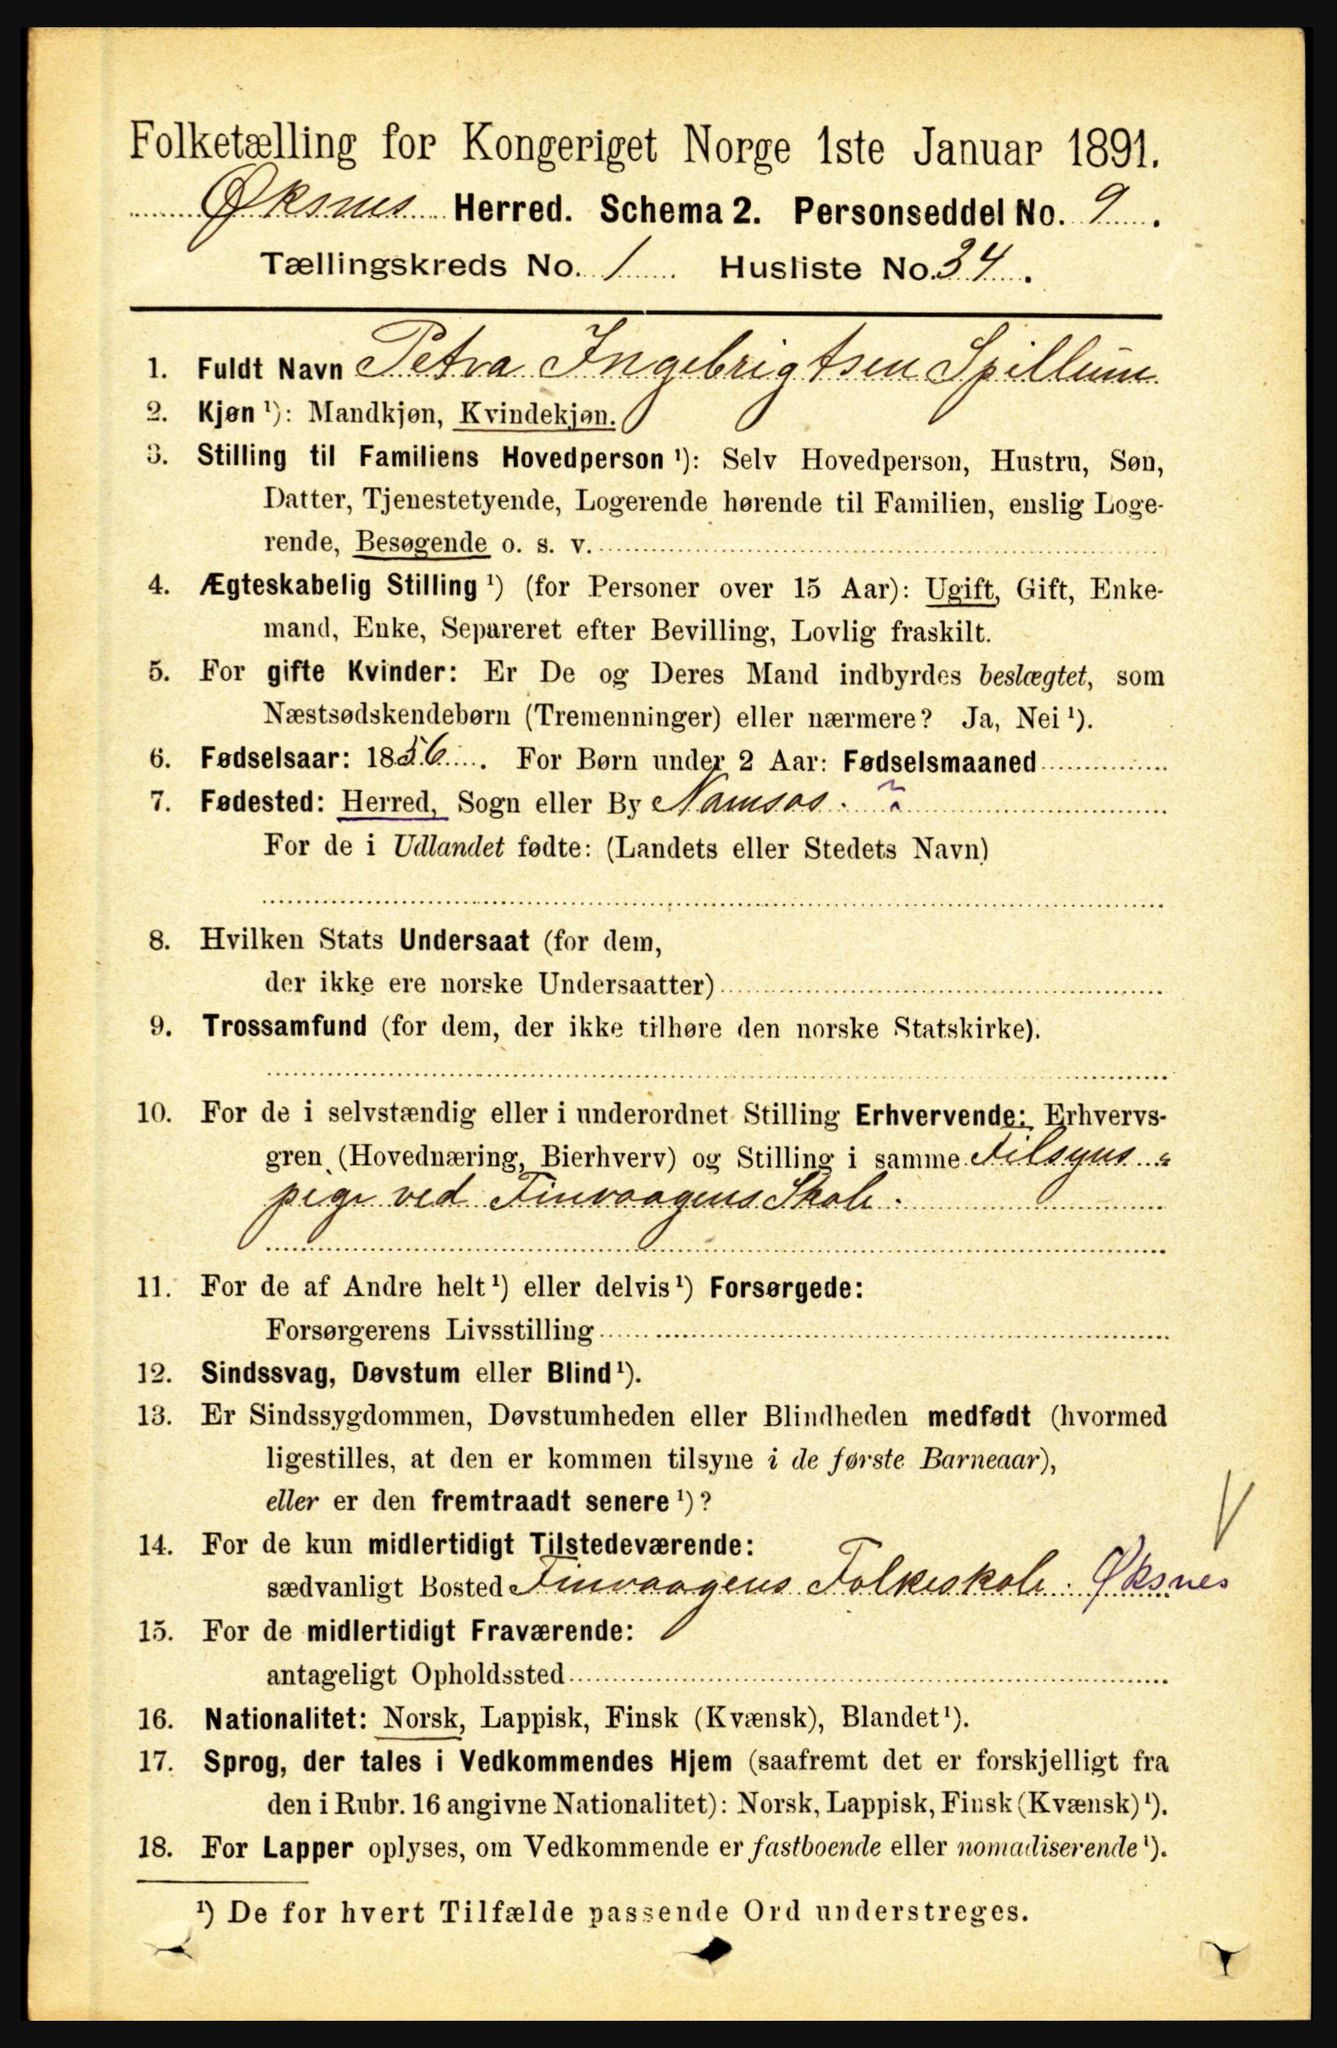 Folketælling for Kongeriget Norge 1ste Januar 1891.
Øksnes Herred. Schema 2. Personseddel No. 9.
Tællingskreds No. 1 Husliste No. 34.
1. Fuldt Navn Petra Ingebrigtsen Spillum
2. Kjøn ¹): Mandkjøn, Kvindekjøn.
3. Stilling til Familiens Hovedperson ¹): Selv Hovedperson, Hustru, Søn,
Datter, Tjenestetyende, Logerende hørende til Familien, enslig Loge-
rende, Besøgende o. s. v.
4. Ægteskabelig Stilling ¹) (for Personer over 15 Aar): Ugift, Gift, Enke-
mand, Enke, Separeret efter Bevilling, Lovlig fraskilt.
5. For gifte Kvinder: Er De og Deres Mand indbyrdes beslægtet, som
Næstsødskendebørn (Tremenninger) eller nærmere? Ja, Nei ¹).
6. Fødselsaar: 1856. For Børn under 2 Aar: Fødselsmaaned
7. Fødested: Herred, Sogn eller By Namsos. ?
For de i Udlandet fødte: (Landets eller Stedets Navn)
8. Hvilken Stats Undersaat (for dem,
der ikke ere norske Undersaatter)
9. Trossamfund (for dem, der ikke tilhøre den norske Statskirke).
10. For de i selvstændig eller i underordnet Stilling Erhvervende: Erhvervs-
gren (Hovednæring, Bierhverv) og Stilling i samme Tilsyns-
pige ved Finvaagens Skole.
11. For de af Andre helt ¹) eller delvis ¹) Forsørgede:
Forsørgerens Livsstilling
12. Sindssvag, Døvstum eller Blind ¹).
13. Er Sindssygdommen, Døvstumheden eller Blindheden medfødt (hvormed
ligestilles, at den er kommen tilsyne i de første Barneaar),
eller er den fremtraadt senere ¹)?
14. For de kun midlertidigt Tilstedeværende:
sædvanligt Bosted Finvaagens Folkeskole. Øksnes
15. For de midlertidigt Fraværende:
antageligt Opholdssted
16. Nationalitet: Norsk, Lappisk, Finsk (Kvænsk), Blandet ¹).
17. Sprog, der tales i Vedkommendes Hjem (saafremt det er forskjelligt fra
den i Rubr. 16 angivne Nationalitet): Norsk, Lappisk, Finsk (Kvænsk) ¹).
18. For Lapper oplyses, om Vedkommende er fastboende eller nomadiserende ¹).
¹) De for hvert Tilfælde passende Ord understreges.